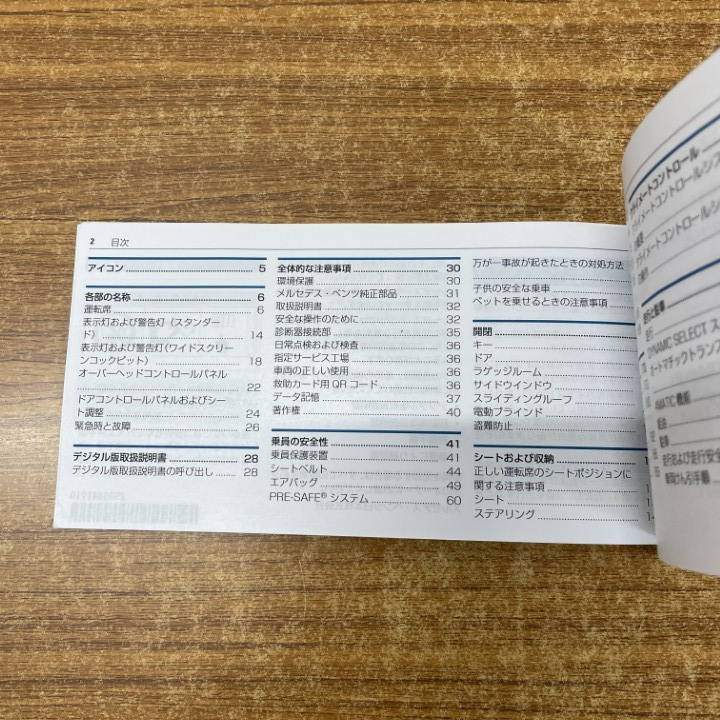 2 目次
アイコン 5
各部の名称 6
運転席 6
表示灯および警告灯（スタンダー
ド） 14
表示灯および警告灯(ワイドスクリー
ンコックピット) 18
オーバーヘッドコントロールパネル
22
ドアコントロールパネルおよびシー
ト調整 24
緊急時と故障 26
デジタル版取扱説明書 28
デジタル版取扱説明書の呼び出し 28
全体的な注意事項 30
環境保護 30
メルセデス・ベンツ純正部品 31
取扱説明書 32
安全な操作のために 32
診断器接続部 35
日常点検および検査 36
指定サービス工場 36
車両の正しい使用 36
救助カード用 QR コード 36
データ記憶 37
著作権 40
乗員の安全性 41
乗員保護装置 41
シートベルト 44
エアバッグ 49
PRE-SAFE® システム 60
万が一事故が起きたときの対処方法
子供の安全な乗車
ペットを乗せるときの注意事項
開閉
キー
ドア
ラゲッジルーム
サイドウインドウ
スライディングルーフ
電動ブラインド
盗難防止
シートおよび収納
正しい運転席のシートポジションに
関する注意事項
シート
ステアリング
イメートコントロール
走行と駐車
DYNAMIC SELECT
オートマチックトランス
4MATIC 機能
給油
駐車
走行および走行安全
車両けん引手順